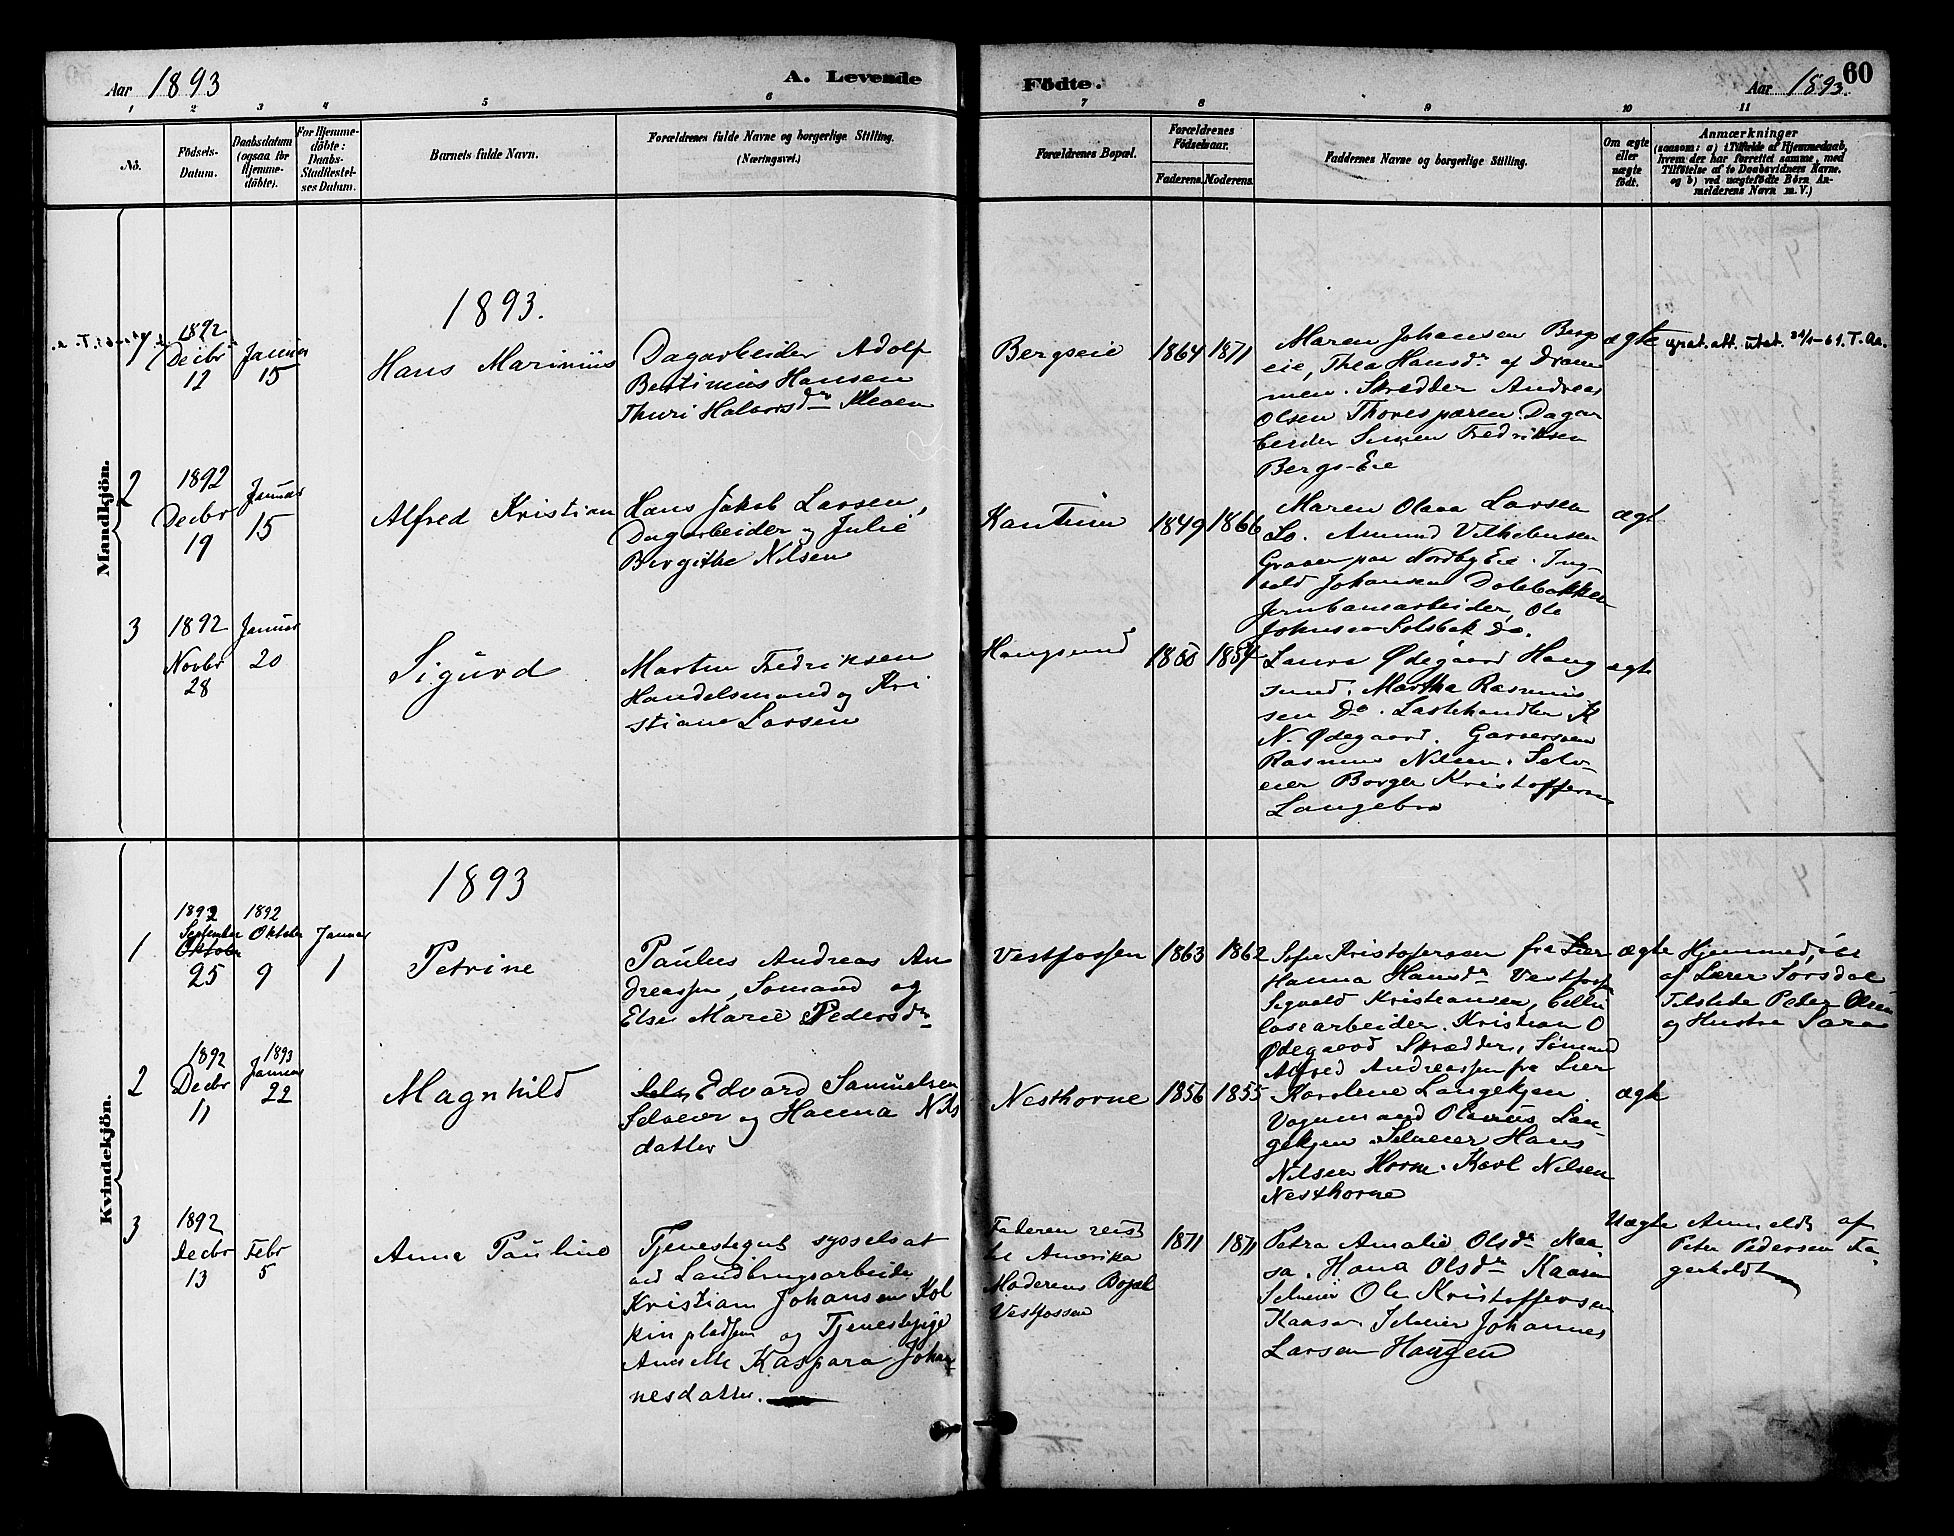 Aar 1893
A. Levende
Födte.
Aar 1893.
60
1 2 3 4 5 6 7 8 9 10 11
No.
Födsels-
Datum.
Daabsdatum
(ogsaa for
Hjemme-
döbte).
For Hjemme-
döbte:
Daabs-
Stadfæstel-
ses Datum.
Barnets fulde Navn.
Forældrenes fulde Navne og borgerlige Stilling.
(Næringsvei.)
Forældrenes Bopæl.
Forældrenes
Födselsaar.
Faderens.
Moderens.
Faddernes Navne og borgerlige Stilling.
Om ægte
eller
uægte
födt.
Anmærkninger
(saasom: a) i Tilfælde af Hjemmedaab,
hvem der har forrettet samme, med
Tilföielse af to Daabsvidners Navne.
og b) ved uægtefödte Börn An-
melderens Navn m. V.)
Mandkjön.
1893.
1
1892
Decbr
12
Januar
15
Hans Marinius
Dagarbeider Adolf
Bertinius Hansen
Thuri Halvorsdr Moen
Bergseie
1864
1871
Maren Johansen Bergs
eie, Thea Hansdr af Dram
men. Skrædder Andreas
Olsen Thoresplæren. Dagar
beider Simen Fredriksen
Bergs-Eie
ægte
2
1892
Decbr
19
Januar
15
Alfred Kristian
Hans Jakob Larsen,
Dagarbeider og Julie
Birgithe Nilsen
1849
1866
Maren Olava Larsen
Lo. Amund Vilhelmsen
Graven paa Nordby Eie. Ing-
vald Johansen Dolebakken
Jernbanearbeider, Ole
Johnsen Solsbak do.
ægt
3
1892
Novbr
28
Januar
20
Sigurd
Martin Fredriksen
Handelsmand og Kri
stiane Larsen
Hougsund
1850
1854
Laura Ødegaard Houg
sund. Martha Rasmus
sen do. Lastehandler K
N. Ødegaard. Garversven
Rasmus Nilsen. Selv-
eier Borger Kristoffersen
Langebro
ægt
Kvindekjön.
1893
1
1892
September
Oktober
25
1892
Oktober
9
Januar
1
Petrine
Paulus Andreas An
dreassen, Sömand og
Else Marie Pedersdr
Vestfossen
1863
1862
Sofie Kristofersen fra Lier
Hanna Hansdr Vestfoss
Sigvald Kristiansen, Cellu
losearbeider. Kristian O
Ødegaard Skrædder, Sömand
Alfred Andreassen fra Lier
ægte
Hjemmedöbt
af Lærer Sorsdal
Tilstede Peter Olsen
og Hustru Sara
2
1892
Decbr
11
1893
Januar
22
Magnhild
Edvard Samuelsen
Selveier og Hanna Nils
datter
Nesthorne
1856
1855
Karoline Langekjen
Vognmand Olavus Lan-
gekjen Selveier Hans
Nilsen Horne. Karl Nilsen
Nesthorne
ægt
3
1892
Decbr
13
Febr
5
Anne Pauline
Tjenestegut sysselsat
ved Landbrugsarbeide
Kristian Johansen Kol
kinpladsen og Tjenestepige
Annette Kaspara Johan
nesdatter.
Faderen reist
til Amerika
Moderens Bopæl
Vestfossen
1871
1871
Petra Amalie Olsdr Kaa
sa. Hana Olsdr Kaasa
Selveier Ole Kristoffersen
Kaasa Selveier Johannes
Larsen Haugen
Uægte
Anmeldt af
Peter Pedersen Fa
gerholdt